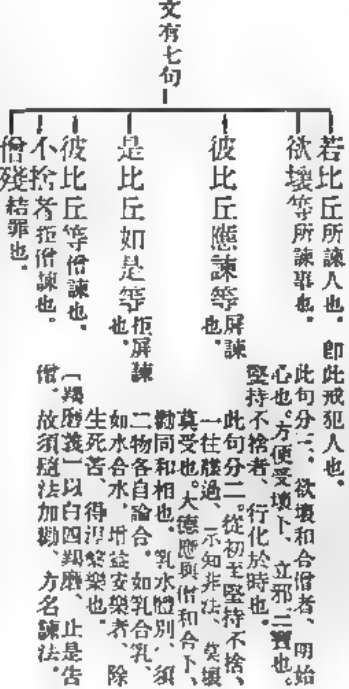 文有七句
若比丘所諫人也．即此戒犯人也．
欲壞等所諫事也．
此句分二．欲壞和合僧者、明始
心也。方便受壞下、立邪三寶也．
堅持不捨者、行化於時也．
彼比丘應諫等屏諫也．
此句分二．從初至堅持不捨、
一往牒過、示知非法、莫壞
莫受也．大德應與僧和合下、
勸同和相也．乳水體別、須
二物各自論合．如乳合乳、
如水合水．增益安樂者、除
生死苦、得涅槃樂也．
是比丘如是等拒屏諫也．
彼比丘等僧諫也．
〔羯磨義〕以白四羯磨、止是告
僧．故須隨法加勸、方名諫法．
不捨者拒僧諫也．
僧殘結罪也．